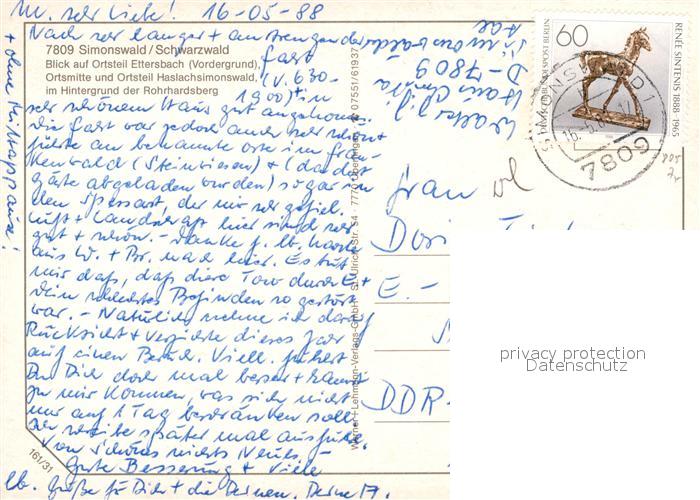 M. sehr Liebe! 16-05-88
Nach sehr langer + anstrengender
7809 Simonswald/Schwarzwald
Blick auf Ortsteil Ettersbach (Vordergrund),
Ortsmitte und Ortsteil Haslachsimonswald,
im Hintergrund der Rohrhardsberg
Fahrt
(v. 630-
1900) + in
sehr schönem Haus gut angekommen.
Die Fahrt war jedoch auch sehr schön +
führte an bekannte Orte im Fran-
kenwald (Steinwiesen) + (da dort
Gäste abgeladen wurden) sogar in
den Spessart, der mir sehr gefiel.
Luft + Landschaft hier sind sehr
gut + schön. - Danke f. lb. Karte
aus W. + Br. nach hier. Es tut
mir leid, daß diese Tour durch E +
Dein schlechtes Befinden so gestört
war. - Natürlich nehme ich darauf
Rücksicht + verzichte dieses Jahr
auf einen Besuch. Viell. fühlst
Du Dich doch mal besser + kannst
zu mir kommen, was sich nicht
nur auf 1 Tag beschränken soll.
schreibe später mal ausführl.
Von Schöns nichts Neues -
Gute Besserung + viele
lb. Grüße für Dich + die Deinen. Deine
+ ohne Mittagspause!
D-7809
Simonswald
60
DEUTSCHE BUNDESPOST BERLIN
RENÉE SINTENIS 1888-1965
SIMONSWALD 1
7809
Werner+Lehmann-Verlags-GmbH St.-Ulrich-Str. 54 · 7770 Überlingen 07551/61937
Frau
E. -
DDR-
161/31
privacy protection
Datenschutz